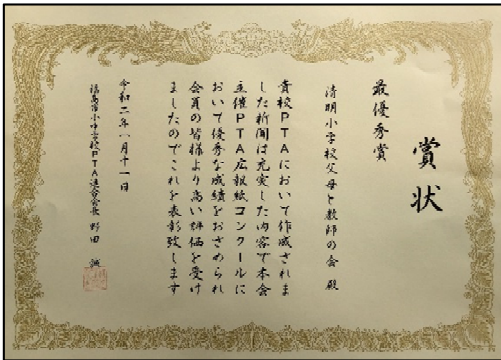 賞状
最優秀賞
清明小学校父母と教師の会 殿
貴校PTAにおいて作成されま
した新聞は充実した内容で本会
主催PTA広報紙コンクールに
おいて優秀な成績をおさめられ
会員の皆様より高い評価を受け
ましたのでこれを表彰致します
令和二年八月十一日
福島市小中学校PTA連合会会長 野田